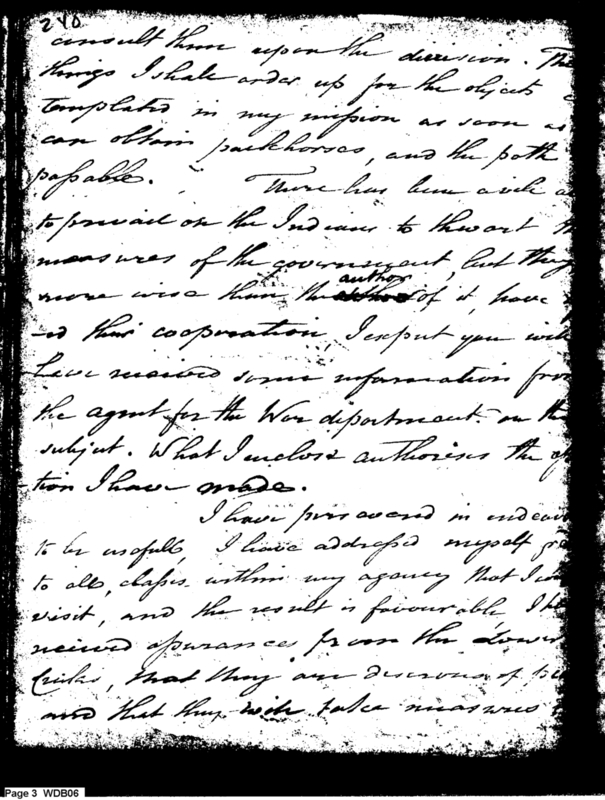 240
consult them upon the division. The
things I shall order up for the objects
templated in my mission as soon as
can obtain packhorses, and the path
passable. There has been a vile
to prevail on the Indians to thwart
measures of the government, but they
more wise than the author of it, have
-ed their cooperation, I expect you will
have received some information from
the agent for the War department on the
subject. What I enclose authorises the
tion I have made.
I have persevered in endeav
to be usefull, I have addressed myself
to all classes within my agency that I
visit, and the result is favourable, I
received assurances from the Lower
Creeks, that they are desirous of
and that they will take measures
Page 3 WDB06